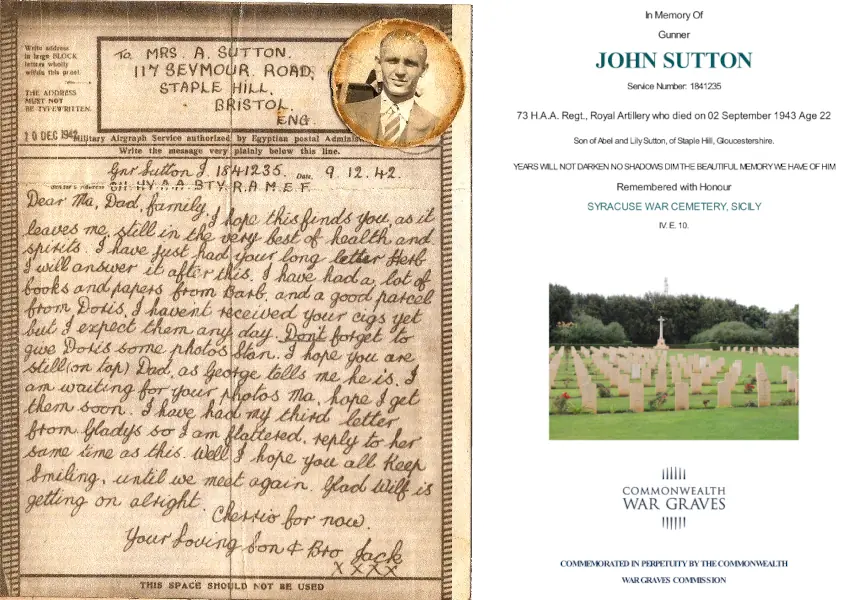 Write address
in large BLOCK
letters wholly
within this panel.
THE ADDRESS
MUST NOT
BE TYPEWRITTEN.
To MRS. A. SUTTON.
117 SEYMOUR ROAD,
STAPLE HILL,
BRISTOL,
ENG.
10 DEC 1942
Military Airgraph Service authorized by Egyptian postal Adminis
Write the message very plainly below this line.
Gnr Sutton J. 1841235. Date. 9. 12. 42.
HY. A.A. BTY. R.A. M.E.F.
Dear Ma, Dad, family,
I hope this finds you, as it
leaves me, still in the very best of health and
spirits. I have just had your long letter Herb
I will answer it after this. I have had a lot of
books and papers from Barb, and a good parcel
from Doris. I havent received your cigs yet
but I expect them any day. Don't forget to
give Doris some photos Stan. I hope you are
still (on top) Dad, as George tells me he is. I
am waiting for your photos Ma, hope I get
them soon. I have had my third letter
from Gladys so I am flattered, reply to her
same time as this. Well I hope you all Keep
Smiling, until we meet again. Glad Wilf is
getting on alright.
Cherrio for now.
Your Loving Son & Bro Jack
X X X X
THIS SPACE SHOULD NOT BE USED
In Memory Of
Gunner
JOHN SUTTON
Service Number: 1841235
73 H.A.A. Regt., Royal Artillery who died on 02 September 1943 Age 22
Son of Abel and Lily Sutton, of Staple Hill, Gloucestershire.
YEARS WILL NOT DARKEN NO SHADOWS DIM THE BEAUTIFUL MEMORY WE HAVE OF HIM
Remembered with Honour
SYRACUSE WAR CEMETERY, SICILY
IV. E. 10.
COMMONWEALTH
WAR GRAVES
COMMEMORATED IN PERPETUITY BY THE COMMONWEALTH
WAR GRAVES COMMISSION